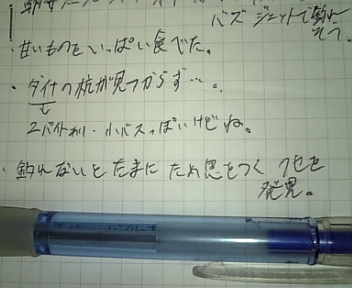 バズジェットで釣れ
そう。
・甘いものをいっぱい食べた。
・ダイナの杭が見つからず…。
2バイトあり・小バスっぽいけどね。
・釣れないとたまにため息をつくクセを
発見。